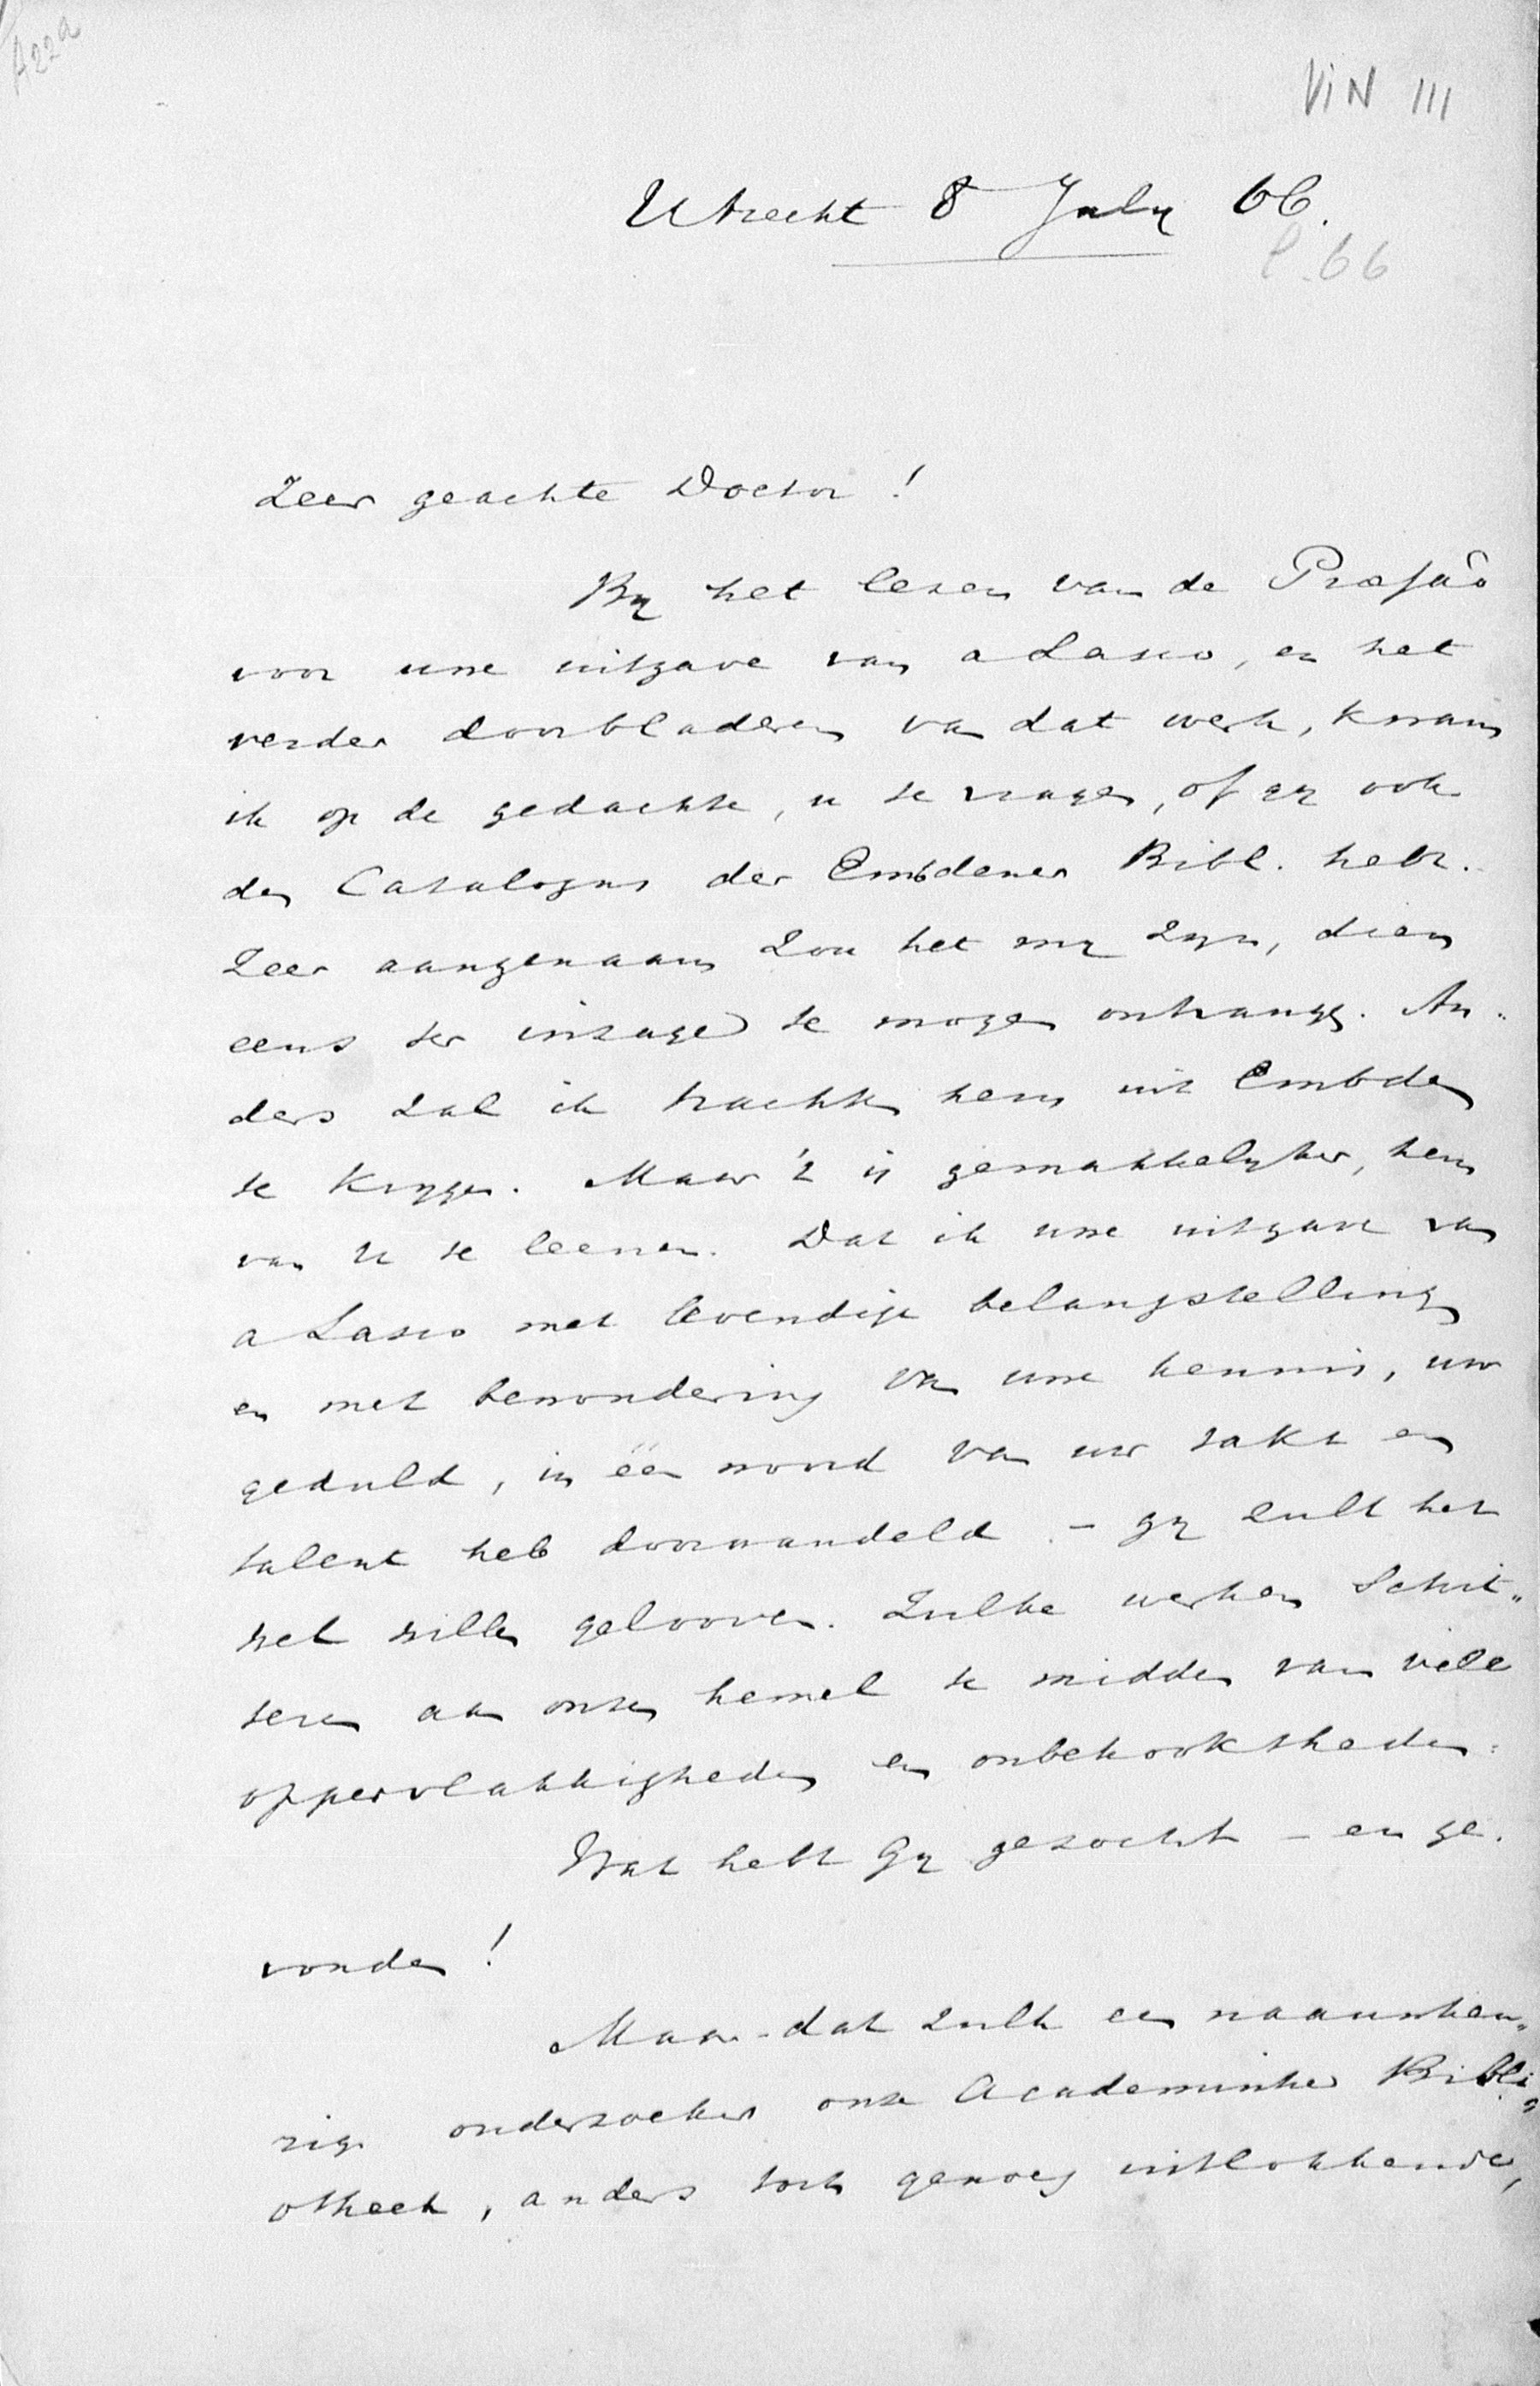 A22a
ViN III
Utrecht 8 July 66.
P. 66
Zeer geachte Doctor!
By het lezen van de Praefaô
voor uwe uitgave van a Lasco, en het
verder doorbladeren van dat werk, kwam
ik op de gedachte, u te vragen, of gy ook
den Catalogus der Embdener Bibl. hebt.
Zeer aangenaam zou het my zyn, dien
eens ter inzage te mogen ontvangen. An„
ders zal ik trachten hem uit Embden
te krygen. Maar 't is gemakkelyker, hem
van U te leenen. Dat ik uwe uitgave van
a Lasco met levendige belangstelling
en met bewondering van uwe kennis, uw
geduld, in één woord van uw takt en
talent heb doorwandeld. - gy zult het
wel willen gelooven. Zulke werken schit„
teren aan onzen hemel te midden van vele
oppervlakkigheden en onbekooktheden.
Wat hebt Gy gezocht - en ge.
vonden!
Maar dat zulk een naauwkeu„
rig onderzoeker onze Academische Bibli„
otheek, anders toch genoeg uitlokkende,